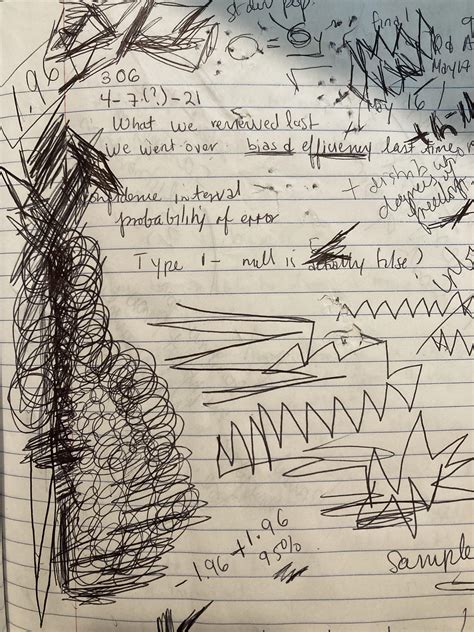 st. dev pop.
final
1.96
May 17
May 16
306
4-7.(?)-21
What we reviewed last
we went over bias & efficiency last time
+ distrib w/
degrees of
freedom
confidence interval
probability of error
Type 1 - null is false)
-1.96 +1.96
95%
Sample